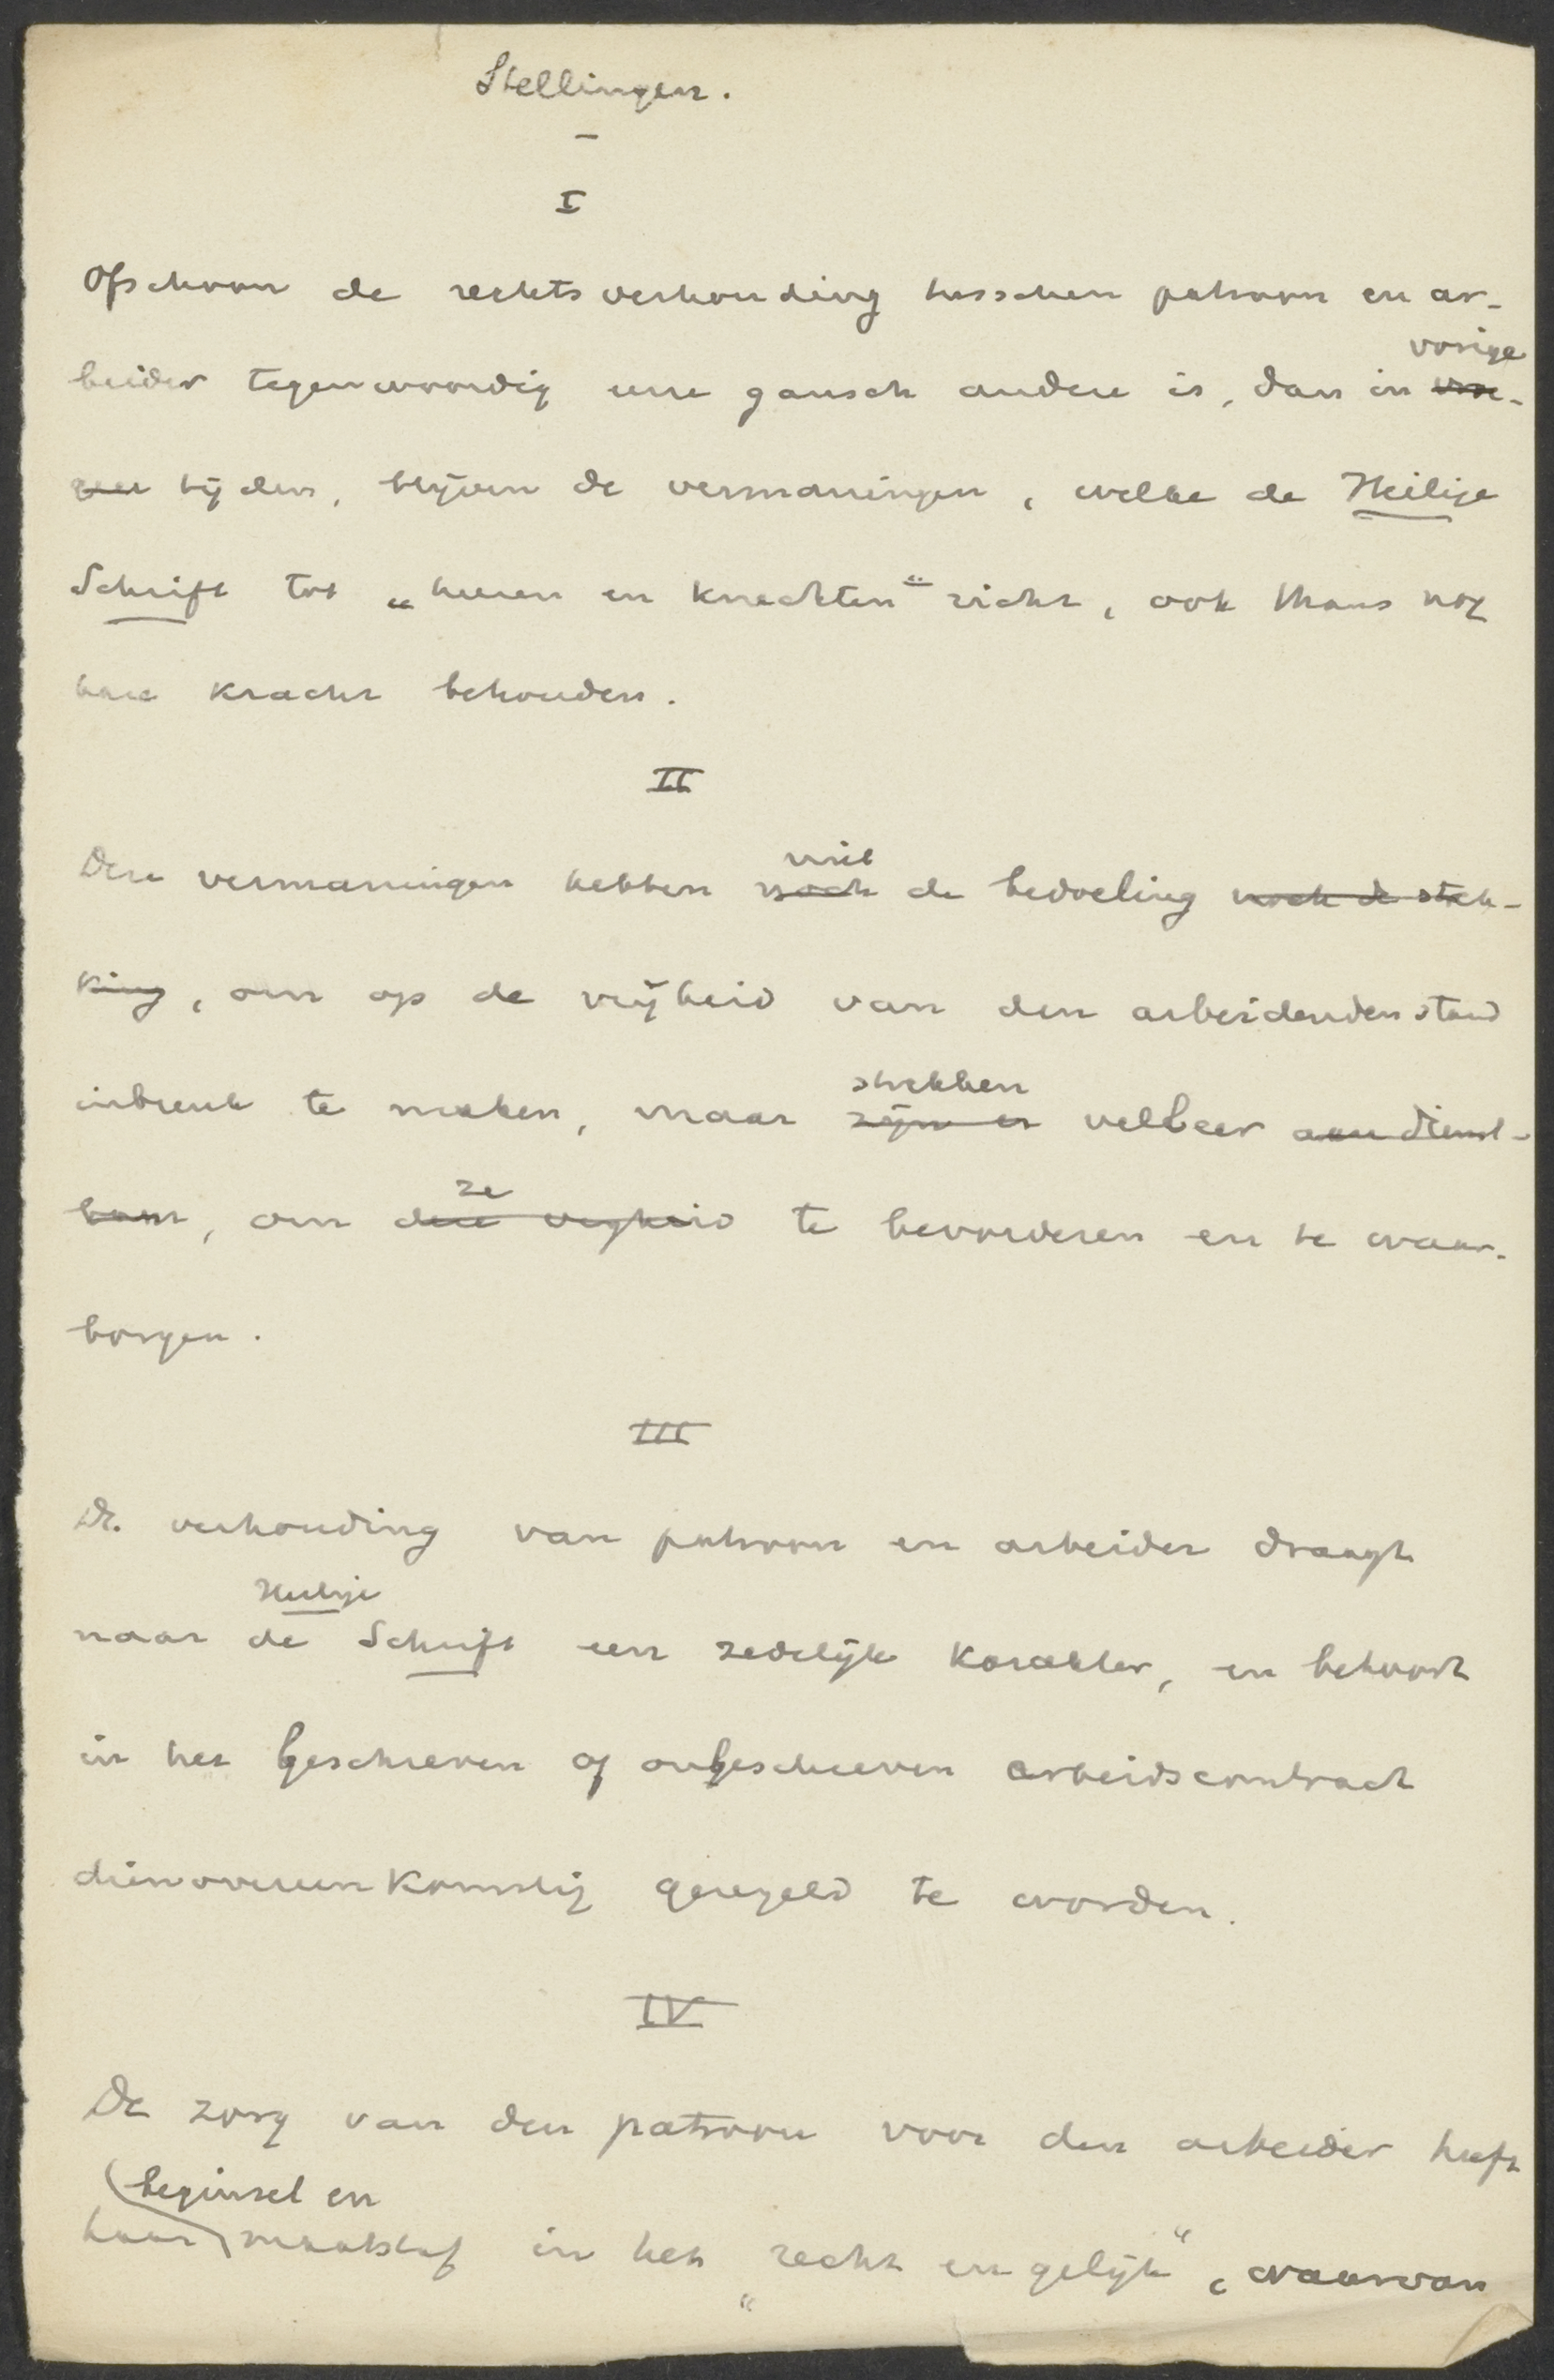 Stellingen.
I
Ofschoon de rechtsverhouding tusschen patroon en ar-
vorige
beider tegenwoordig eene gansch andere is, dan in vroe-
ger tijden, blijven de vermaningen, welke de Heilige
Schrift tot „heeren en knechten“ richt, ook thans nog
hare kracht behouden.
II
niet
Deze vermaningen hebben noch de bedoeling noch de strek-
king, om op de vrijheid van den arbeidenden stand
strekken
inbreuk te maken, maar zijn er veeleer aan dienst-
ze
baar, om deze vrijheid te bevorderen en te waar-
borgen.
III
De verhouding van patroon en arbeider draagt
Heilige
naar de Schrift een zedelijk karakter, en behoort
in het geschreven of ongeschreven arbeidscontract
dienovereenkomstig geregeld te worden.
IV
De zorg van den patroon voor den arbeider heeft
beginsel en
haar maatstaf in het „recht en gelijk“, waarvan